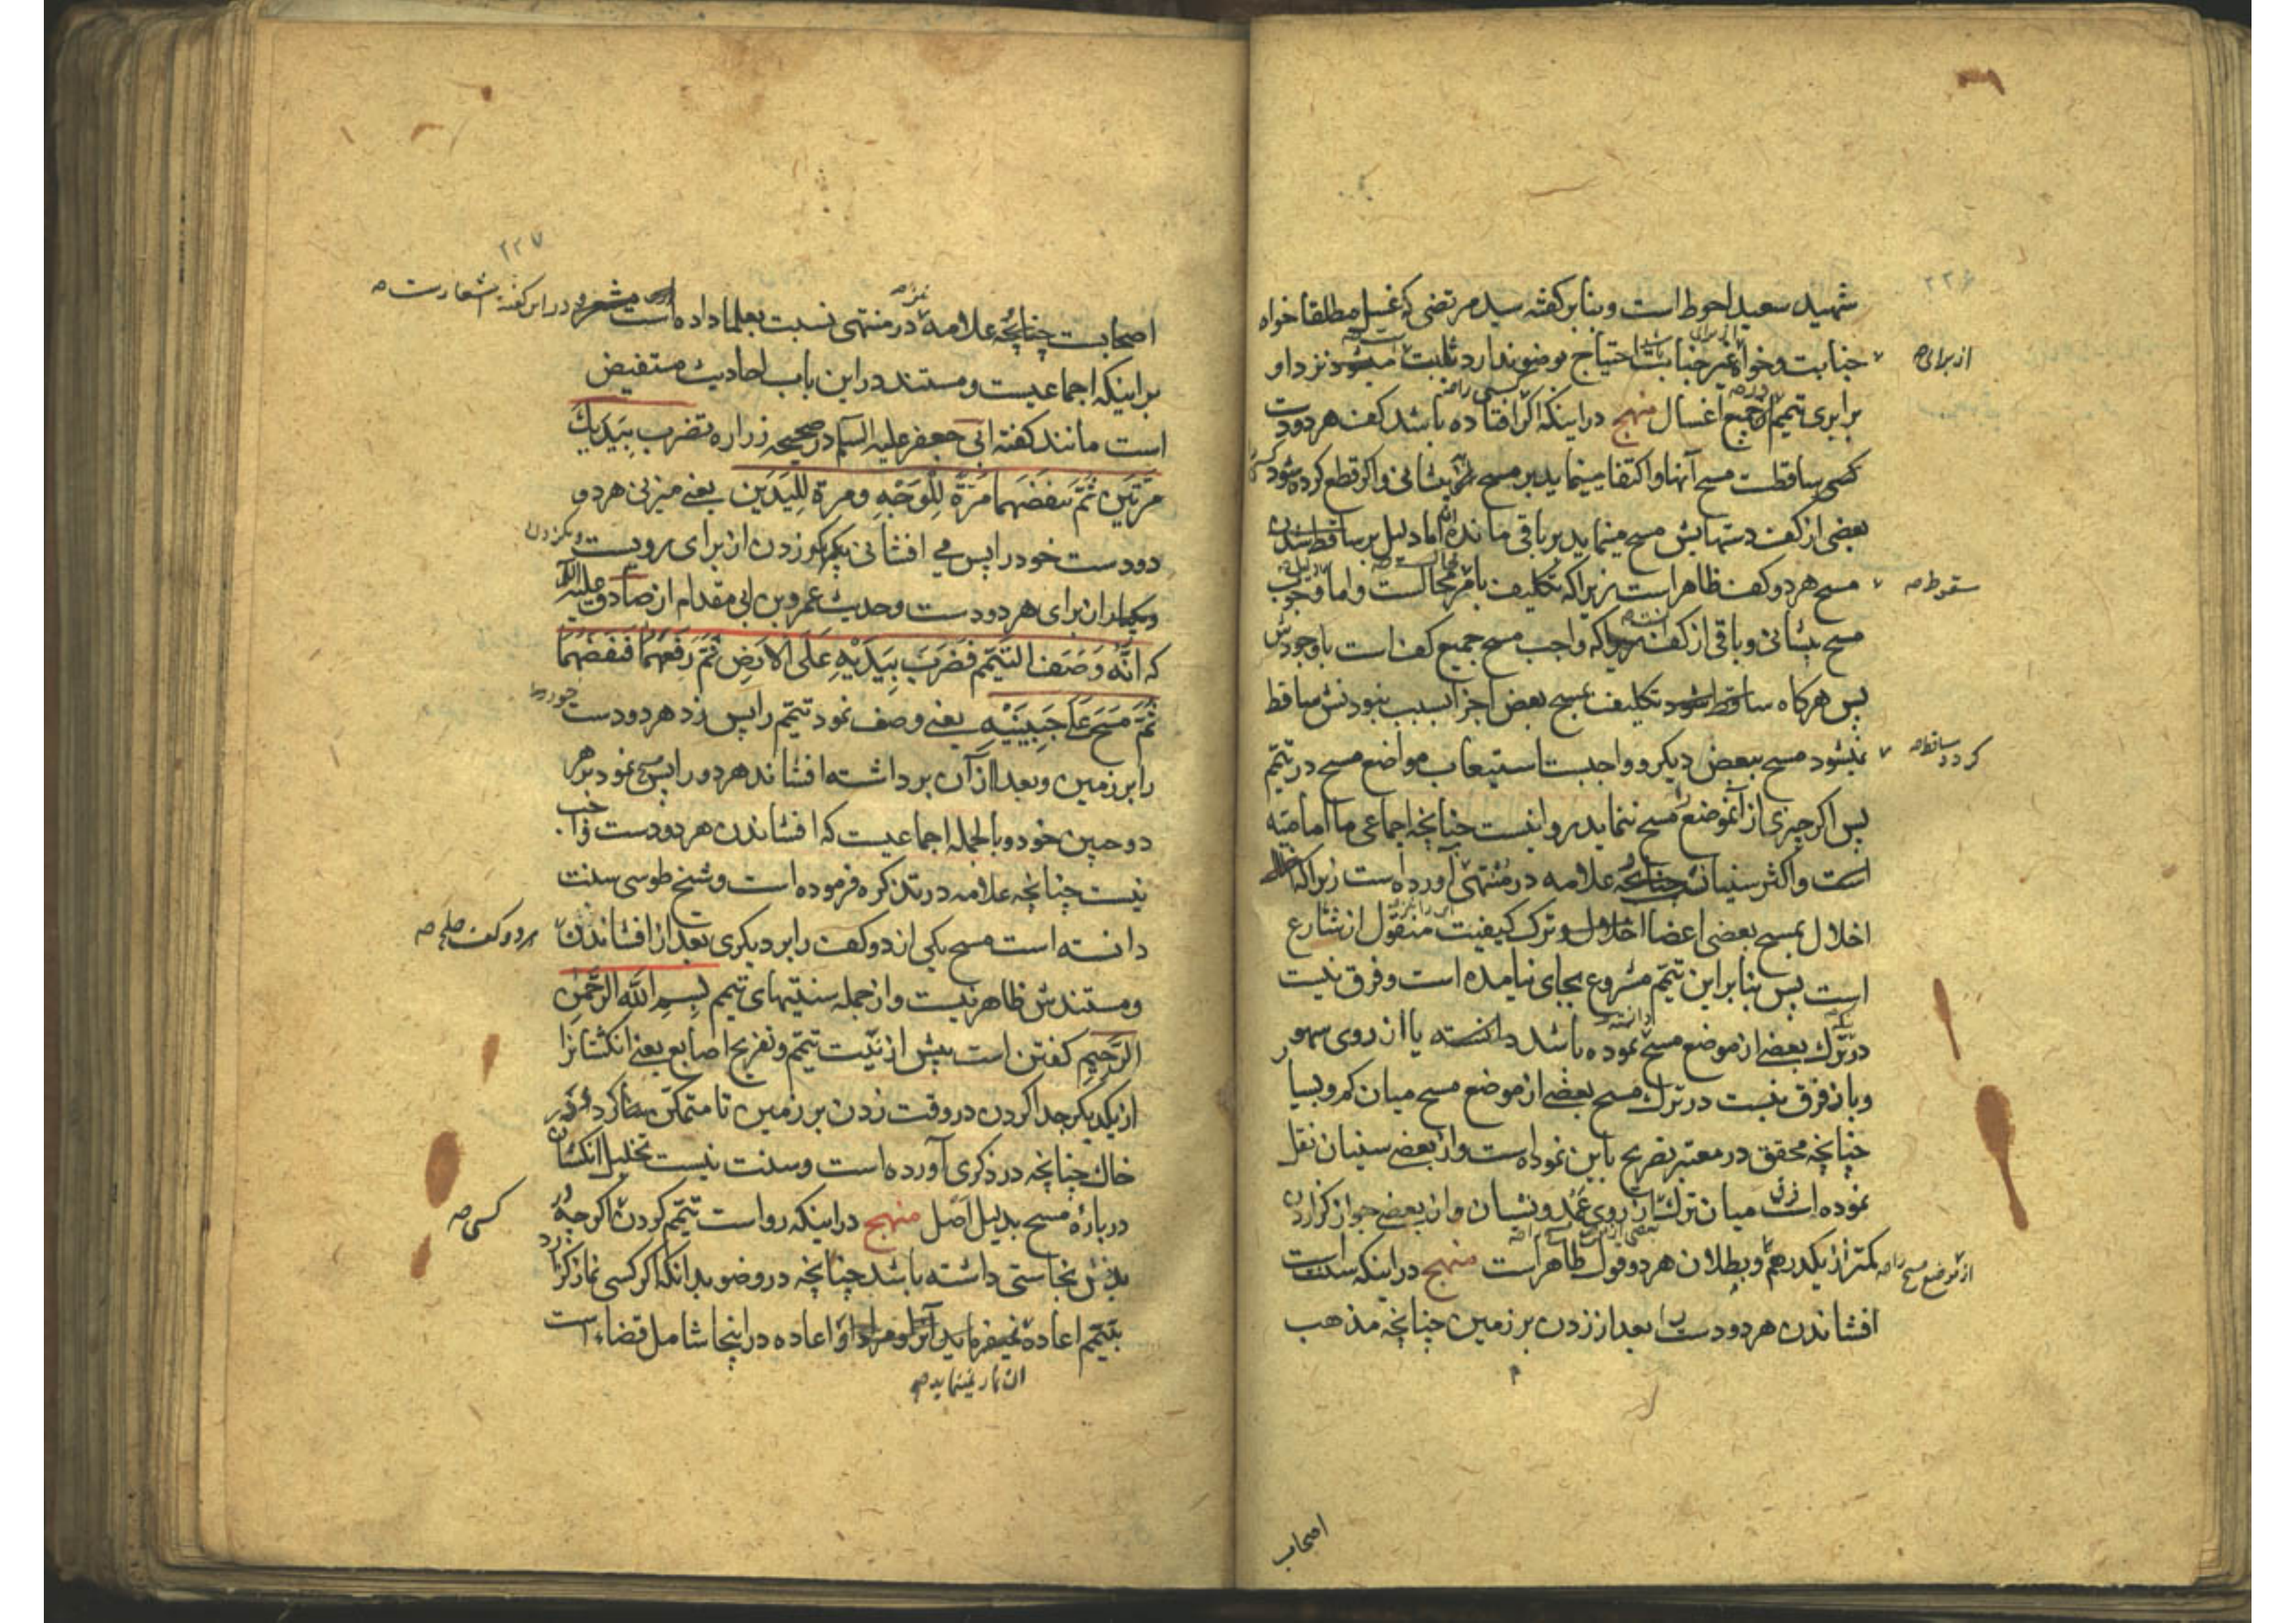 ۲۲۶
شهید سعید احوط است و بنابر کفته سید مرتضی که غسل مطلقا خواه
جنابت و خواه غیر جنابت احتیاج بوضو ندارد ثابت میشود نزد او
از برای صح
برابری تیمم در جمیع اغسال منهج در اینکه اکر افتاده باشد کف هر دو دست
کسی ساقطست مسح آنها و اکتفا مینماید بر مسح پیشانی و اکر قطع کرده شود
بعضی از کف دستهایش مسح مینماید بر باقی مانده اما دلیل بر ساقط شدن
مسح هر دو کف ظاهر است زیرا که تکلیف بامر محالست و اما وجوب
سقوط صح
مسح پیشانی و باقی از کف زیرا که واجب مسح جمیع کف است با وجودش
پس هرکاه ساقط شود تکلیف بمسح بعض اجزا بسبب نبودنش ساقط
نمیشود مسح ببعض دیکر و واجبست استیعاب مواضع مسح در تیمم
کردد ساقط صح
پس اکر چیزی از آنموضع مسح ننماید روا نیست چنانچه اجماعی ما امامیه
است و اکثر سنیان چنانچه علامه در منتهی آورده است زیرا که
اخلال بمسح بعضی اعضا اخلال و ترک کیفیت منقول از شارع
است پس بنابر این تیمم مشروع بجای نیامده است و فرق نیست
در ترک بعضی از موضع مسح نموده باشد دانسته یا از روی سهو
و باز فرق نیست در ترک مسح بعضی از موضع مسح میان کم و بسیار
چنانچه محقق در معتبر تصریح باین نموده است و از بعضی سنیان نقل
نموده است فرق میان ترک از روی عمد و نسیان و از بعضی جواز کزاردن
کمتر از یکدرهم و بطلان هر دو قول ظاهر است منهج در اینکه سنت است
از موضع مسح را صح
افشاندن هر دو دست بعد از زدن بر زمین چنانچه مذهب
اصحاب
۲۲۷
اصحابست چنانچه علامه در منتهی نسبت بعلما داده است در این کفته اشعار است صح
بر اینکه اجماعیست و مستند در این باب احادیث مستفیض
است مانند کفته ابی جعفر علیه السلم در صحیحه زراره تضرب بِیَدَیك
مَرّتَین ثُمّ تنفضهما مَرّةً لِلْوَجْهِ و مرة لِلیَدَین یعنی میزنی هر دو
دو دست خود را پس می افشانی یکبار زدن از برای رویست
و یکبار از برای هر دو دست و حدیث عمرو بن ابی مقدام از صادق علیه السلم
که انّه وَصَفَ التَیَمّم فَضَرَبَ بِیَدَیْهِ عَلَی الاَرضِ ثُمّ رَفَعَهُما فَنَفَضَهُما
ثُمّ مَسَحَ عَلَی جَبِینَیْهِ یعنی وصف نمود تیمم را پس زد هر دو دست خود را
را بر زمین و بعد از آن برداشته افشاند هر دو را پس مسح نمود بر هر
دو جبین خود و بالجمله اجماعیست که افشاندن هر دو دست واجب
نیست چنانچه علامه در تذکره فرموده است و شیخ طوسی سنت
دانسته است مسح یکی از دو کف را بر دیکری بعد از افشاندن
هر دو کف صح
و مستندش ظاهر نیست و از جمله سنتیهای تیمم بِسمِ اللّه الرَّحمٰن
الرَّحِیمِ کفتن است پیش از نیّت تیمم و تفریح اصابع یعنی انکشتانرا
از یکدیکر جدا کردن در وقت زدن بر زمین تا متمکن کردد در
خاک چنانچه در ذکری آورده است و سنت نیست تخلیل انکشتان
درباره مسح بدلیل اصل منهج در اینکه رواست تیمم کردن اکر چه در
کسی صح
بدنش نجاستی داشته باشد چنانچه در وضو بدانکه اکر کسی نماز کزارد
بتیمم اعاده نمیفرماید آنرا و مراد از اعاده در اینجا شامل قضاء است
آن نماز نمینماید صح